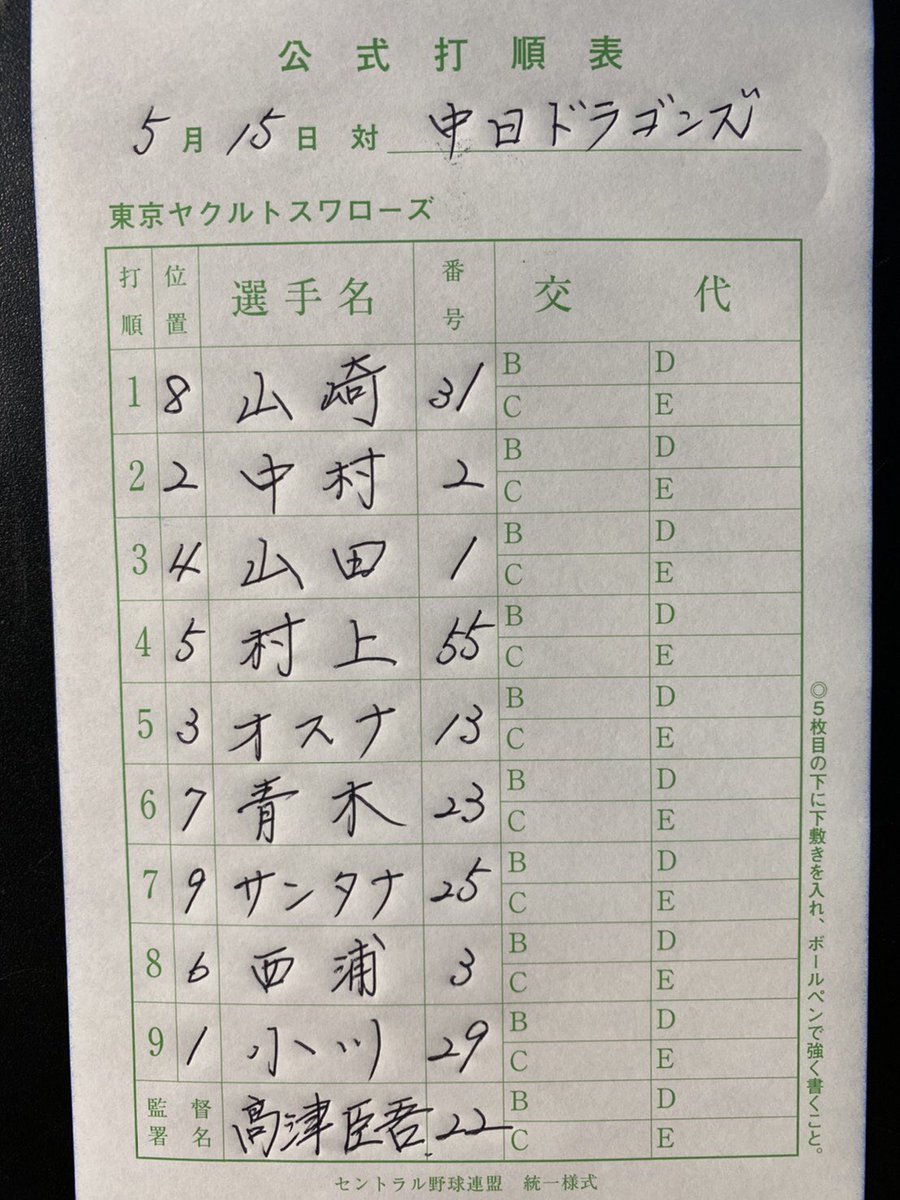 公式打順表
5月15日 対 中日ドラゴンズ
東京ヤクルトスワローズ
打順 位置 選手名 番号 交代
1 8 山崎 31 B D
C E
2 2 中村 2 B D
C E
3 4 山田 1 B D
C E
4 5 村上 55 B D
C E
5 3 オスナ 13 B D
C E
6 7 青木 23 B D
C E
7 9 サンタナ 25 B D
C E
8 6 西浦 3 B D
C E
9 1 小川 29 B D
C E
監督署名 高津臣吾 22 B D
C E
◎5枚目の下に下敷きを入れ、ボールペンで強く書くこと。
セントラル野球連盟 統一様式